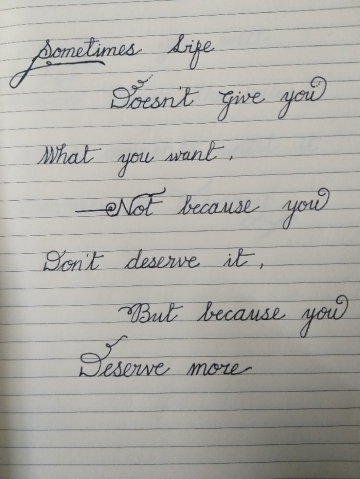 Sometimes life
Doesn't give you
What you want,
Not because you
Don't deserve it,
But because you
Deserve more